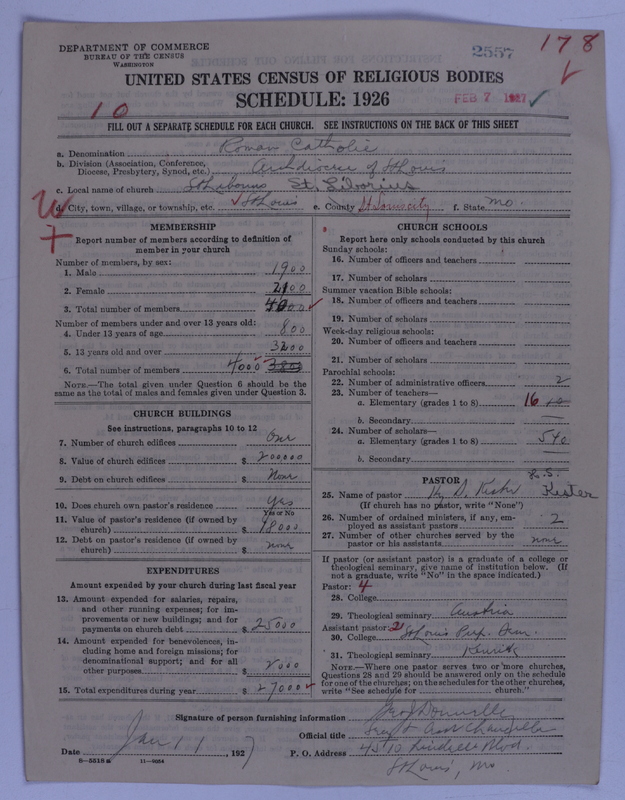 DEPARTMENT OF COMMERCE
BUREAU OF THE CENSUS
WASHINGTON
2557
178
UNITED STATES CENSUS OF RELIGIOUS BODIES
SCHEDULE: 1926
FEB 7 1927
10
FILL OUT A SEPARATE SCHEDULE FOR EACH CHURCH. SEE INSTRUCTIONS ON THE BACK OF THIS SHEET
a. Denomination Roman Catholic
b. Division (Association, Conference, Diocese, Presbytery, Synod, etc.) Archdiocese of St Louis
c. Local name of church St Liborius St. Liborius
d. City, town, village, or township, etc. St Louis e. County St Louis city f. State Mo.
MEMBERSHIP
Report number of members according to definition of
member in your church
Number of members, by sex:
1. Male 1900
2. Female 2100
3. Total number of members 4000
Number of members under and over 13 years old:
4. Under 13 years of age 800
5. 13 years old and over 3200
6. Total number of members 4000 3800
NOTE.—The total given under Question 6 should be the
same as the total of males and females given under Question 3.
CHURCH BUILDINGS
See instructions, paragraphs 10 to 12
7. Number of church edifices One
8. Value of church edifices $ 200000
9. Debt on church edifices $ None
10. Does church own pastor's residence? yes
Yes or No
11. Value of pastor's residence (if owned by
church) $ 48000
12. Debt on pastor's residence (if owned by
church) $ none
EXPENDITURES
Amount expended by your church during last fiscal year
13. Amount expended for salaries, repairs,
and other running expenses; for im-
provements or new buildings; and for
payments on church debt $ 25000
14. Amount expended for benevolences, in-
cluding home and foreign missions; for
denominational support; and for all
other purposes $ 2000
15. Total expenditures during year $ 27000
CHURCH SCHOOLS
Report here only schools conducted by this church
Sunday schools:
16. Number of officers and teachers
17. Number of scholars
Summer vacation Bible schools:
18. Number of officers and teachers
19. Number of scholars
Week-day religious schools:
20. Number of officers and teachers
21. Number of scholars
Parochial schools:
22. Number of administrative officers 2
23. Number of teachers—
a. Elementary (grades 1 to 8) 16
b. Secondary
24. Number of scholars—
a. Elementary (grades 1 to 8) 540
b. Secondary
PASTOR
25. Name of pastor Kister
(If church has no pastor, write "None")
26. Number of ordained ministers, if any, em-
ployed as assistant pastors 2
27. Number of other churches served by the
pastor or his assistants none
If pastor (or assistant pastor) is a graduate of a college or
theological seminary, give name of institution below. (If
not a graduate, write "No" in the space indicated.)
Pastor: 4
28. College
29. Theological seminary Austria
Assistant pastor: 2
30. College St Louis Prep. Sem.
31. Theological seminary Kenrick
NOTE.—Where one pastor serves two or more churches,
Questions 28 and 29 should be answered only on the schedule
for one of the churches; on the schedules for the other churches,
write "See schedule for church."
Signature of person furnishing information
Official title
Date Jan 11, 1927 P. O. Address 4510 Lindell Blvd.
St Louis, Mo.
8—5518a 11—9064